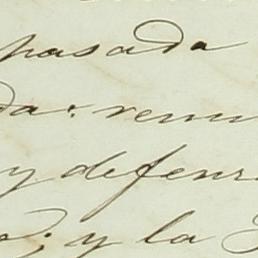 pasada
da: renu
y defens
; y la